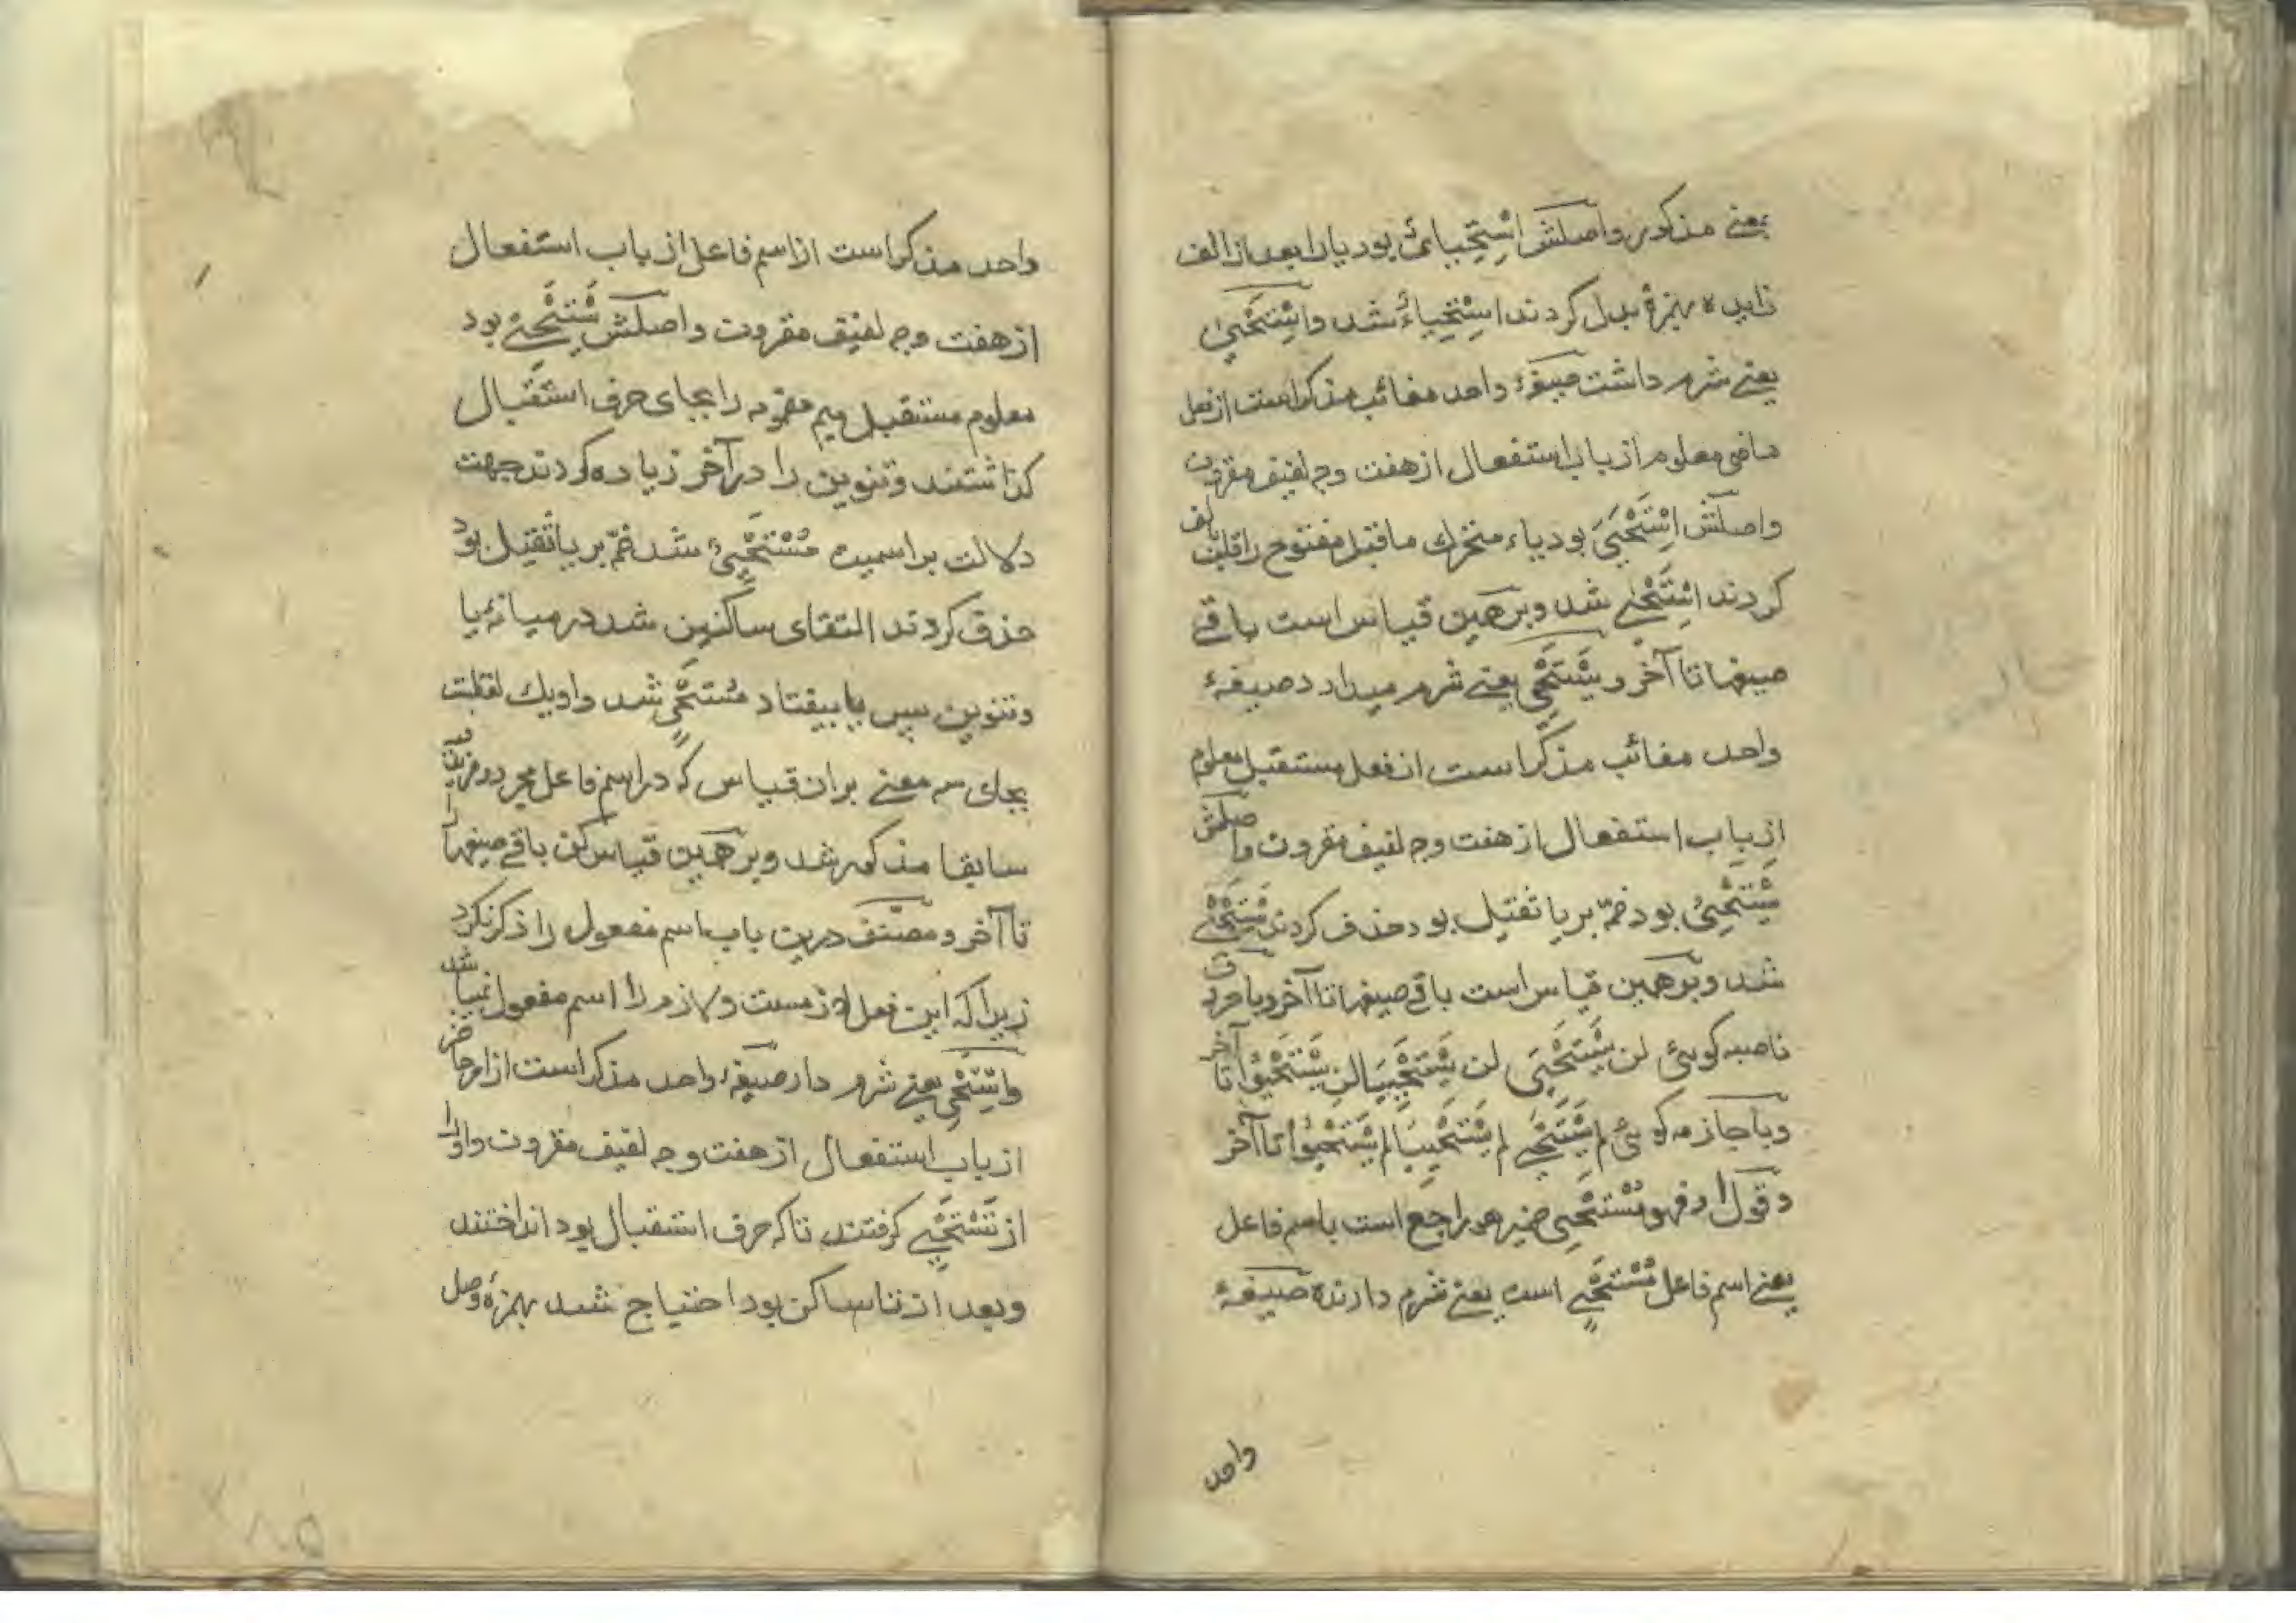 بمعنے مذکور واصلش اِسْتِحْیَایٌ بود یا را بعد از الف
زایده بهمزهٔ بدل کردند اِسْتِحْیَاءٌ شد و اِسْتَحْیىٰ
یعنے شرم داشت صیغهٔ واحد مغائب مذکر است از فعل
ماضی معلوم از باب استفعال از هفت وجه لفیف مقرون
واصلش اِسْتَحْیَىَ بود یاء متحرك ماقبل مفتوح را قلب بالف
کردند اِسْتَحْیٰے شد و برهمین قیاس است باقے
صیغها تا آخر و یَسْتَحْیِی یعنے شرم میدارد صیغهٔ
واحد مغائب مذکر است از فعل مستقبل معلوم
از باب استفعال از هفت وجه لفیف مقرون واصلش
یَسْتَحْیِیُ بود ضمّه بر یا ثقیل بود حذف کردند یَسْتَحْیِے
شد و برهمین قیاس است باقے صیغها تا آخر و با حروف
ناصبه کویئ لن یَسْتَحْیِیَ لن یَسْتَحْیِیَا لن یَسْتَحْیُوْا تا آخر
و با جازمه کویئ لم یَسْتَحْیِے لم یَسْتَحْیِیَا لم یَسْتَحْیُوْا تا آخر
وقول او فهو مُسْتَحْیِی ضمیر هو راجع است باسم فاعل
یعنے اسم فاعل مُسْتَحْیِے است یعنے شرم دارنده صیغهٔ
واحد
واحد مذکر است از اسم فاعل از باب استفعال
از هفت وجه لفیف مقرون واصلش یَسْتَحْیِےُ بود
معلوم مستقبل میم مضمومه را بجای حرف استقبال
کذاشتند وتنوین را در آخر زیاده کردند جهت
دلالت بر اسمیت مُسْتَحْیِیٌ شد ضمّه بر یا ثقیل بود
حذف کردند التقای ساکنین شد در میانهٔ یا
وتنوین پس یا بیفتاد مُسْتَحْیٍ شد
بران قیاس که در اسم فاعل مجرد
سابقا مذکور شد و برهمین قیاس کن باقے صیغها را
تا آخر ومصنف درین باب اسم مفعول را ذکر نکرد
زیرا که این فعل لازمست ولازم را اسم مفعول نمیباشد
واِسْتَحْیِ یعنے شرم دار صیغهٔ واحد مذکر است از امر حاضر
از باب استفعال از هفت وجه لفیف مقرون و او را
از تَسْتَحْیِے کرفتند تا که حرف استقبال بود انداختند
وبعد از تا ساکن بود احتیاج شد بهمزهٔ وصل